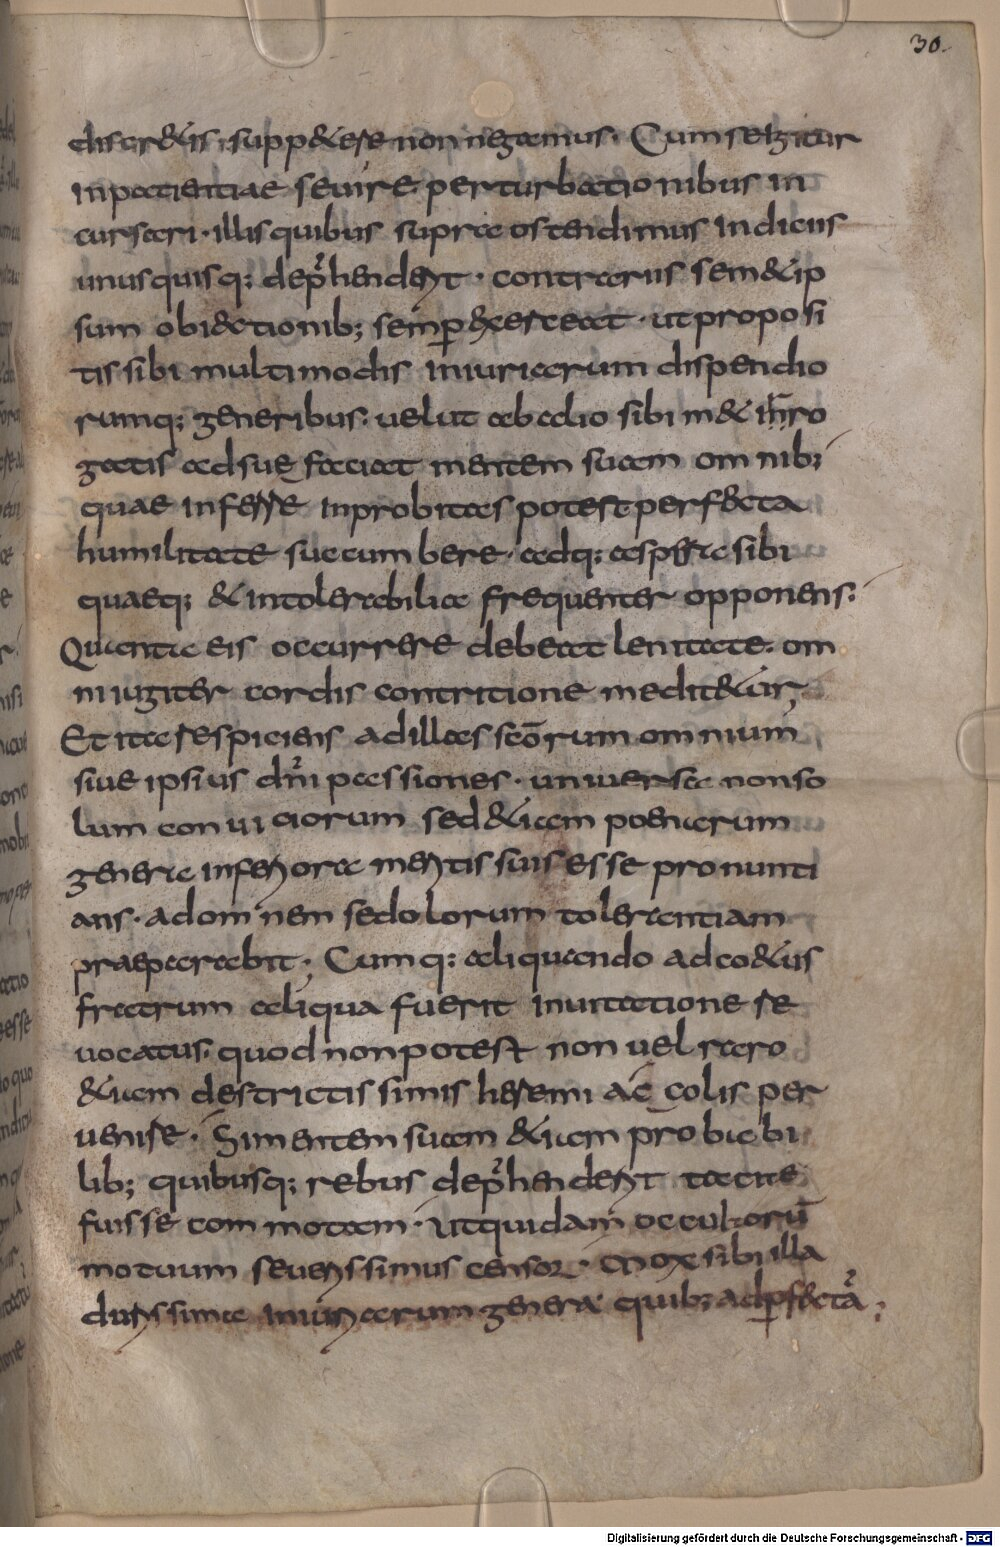 30.
discretis; suppetere non negamus. Cum se igitur
inpatientiae se uire perturbationibus in
cursari. illis quibus supra ostendimus indiciis
unusquisq; dep̄henderit. contrariis semetip
sum obiectionib; semp exerceat. ut proposi
tis sibi multimodis iniuriarum dispendio
rumq; generibus. uelut ab alio sibi met inro
gatis adsuefaciat mentem suam omnib;
quae inferre inprobitas potest perfecta
humilitate succumbere. adq; aspera sibi
quaeq; & intolerabilia frequenter opponens.
Quanta eis occurrere debeat lenitate. om
ni iugiter cordis contritione meditetur,
Et ita respiciens ad illas scōrum omnium
siue ipsius dn̄i passiones. uniuersa non so
lum conuiciorum sed etiam poenarum
genera inferiora meritis suis esse pronunti
ans. ad omnem se dolorum tolerantiam
praeparabit; Cumq; aliquando ad coetus
fratrum aliqua fuerit inuitatione re
uocatus. quod non potest non uel raro
etiam destrictissimis heremi accolis per
uenire. Si mentem suam etiam pro uiabi
lib; quibusq; rebus dep̄henderit tacite
fuisse commotam. ut quidam occultorū
motuum seuerissimus censor. mox sibi illa
durissima iniuriarum genera quib; ad pfecta
Digitalisierung gefördert durch die Deutsche Forschungsgemeinschaft - DFG